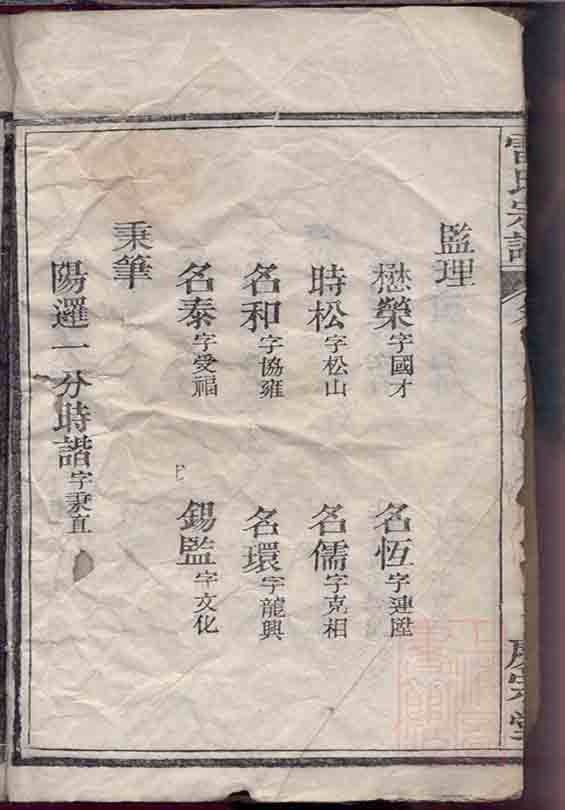 雷氏宗譜
監理
懋榮字國才 名恆字連陞
時松字松山 名儒字克相
名和字協雍 名環字龍興
名泰字受福 錫監字文化
秉筆
陽邏一分時諧字秉直